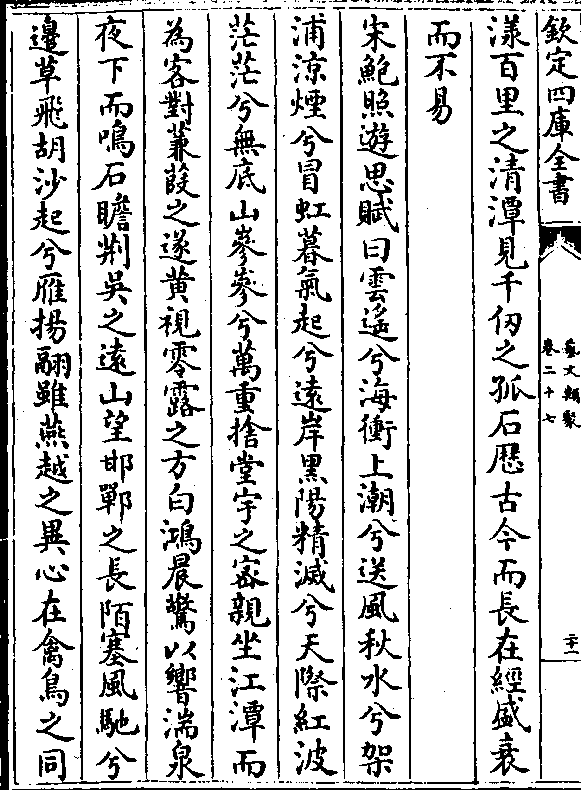 欽定四庫全書
藝文類聚
卷二十七
二十一
漾百里之清潭見千仞之孤石歷古今而長在經盛衰
而不易
宋鮑照遊思賦曰雲遙兮海衝上潮兮送風秋水兮架
浦涼煙兮冒虹暮氣起兮遠岸黑陽精滅兮天際紅波
茫茫兮無底山參參兮萬重捨堂宇之密親坐江潭而
為客對蒹葭之遂黃視零露之方白鴻晨驚以響湍泉
夜下而鳴石瞻荆吳之遠山望邯鄲之長陌塞風馳兮
邊草飛胡沙起兮雁揚翮雖燕越之異心在禽鳥之同